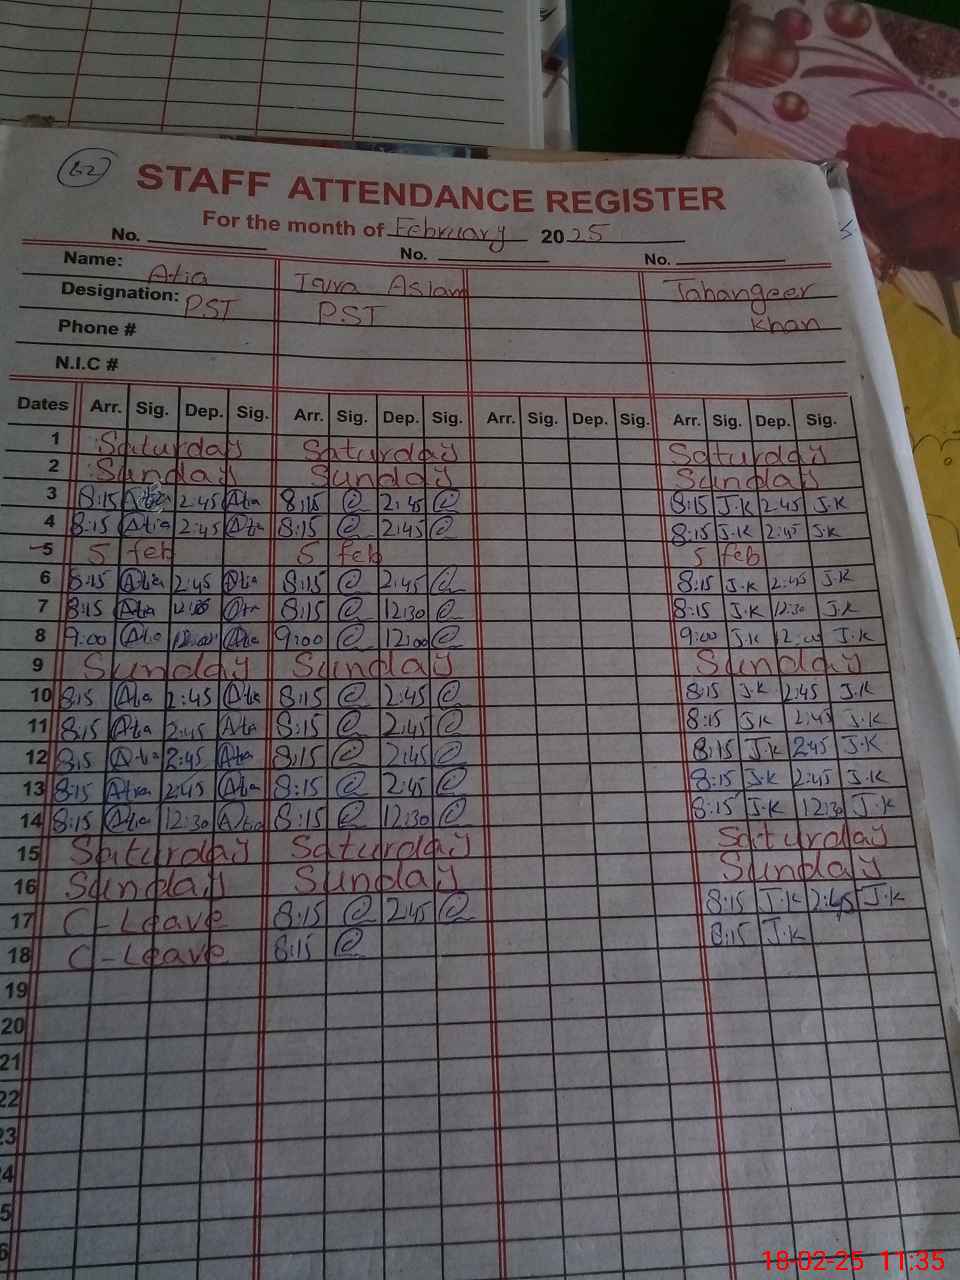 62
STAFF ATTENDANCE REGISTER
For the month of February 2025
No. No. No.
Name: Atia Iqra Aslam Jahangeer
Designation: PST PST Khan
Phone #
N.I.C #
Dates Arr. Sig. Dep. Sig. Arr. Sig. Dep. Sig. Arr. Sig. Dep. Sig. Arr. Sig. Dep. Sig.
1 Saturday Saturday Saturday
2 Sunday Sunday Sunday
3 8:15 Atia 2:45 Atia 8:15 2:45 8:15 J.K 2:45 J.K
4 8:15 Atia 2:45 Atia 8:15 2:45 8:15 J.K 2:45 J.K
5 5 feb 5 feb 5 feb
6 8:15 Atia 2:45 Atia 8:15 2:45 8:15 J.K 2:45 J.K
7 8:15 Atia 8:15 12:30 8:15 J.K 12:30 J.K
8 9:00 Atia 12:00 Atia 9:00 12:00 9:00 J.K 12:00 J.K
9 Sunday Sunday Sunday
10 8:15 Atia 2:45 Atia 8:15 2:45 8:15 J.K 2:45 J.K
11 8:15 Atia 2:45 Atia 8:15 2:45 8:15 J.K 2:45 J.K
12 8:15 Atia 2:45 Atia 8:15 2:45 8:15 J.K 2:45 J.K
13 8:15 Atia 2:45 Atia 8:15 2:45 8:15 J.K 2:45 J.K
14 8:15 Atia 12:30 Atia 8:15 12:30 8:15 J.K 12:30 J.K
15 Saturday Saturday Saturday
16 Sunday Sunday Sunday
17 C-Leave 8:15 2:45 8:15 J.K 2:45 J.K
18 C-Leave 8:15 8:15 J.K
19
20
21
22
23
4
5
6
18-02-25 11:35